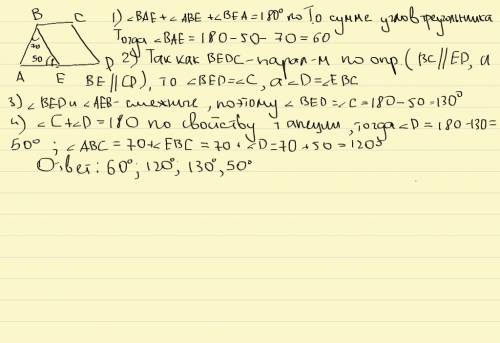 B C
70
50
A E D
1) ∠BAE + ∠ABE + ∠BEA = 180° по То сумме углов треугольника
Тогда ∠BAE = 180 - 50 - 70 = 60
2) Так как BEDC - парал-м по опр. (BC ∥ ED, а
BE ∥ CD), то ∠BED = ∠C, а ∠D = ∠EBC
3) ∠BED и ∠AEB - смежные, поэтому ∠BED = ∠C = 180 - 50 = 130°
4) ∠C + ∠D = 180 по свойству трапеции, тогда ∠D = 180 - 130 =
50°; ∠ABC = 70 + ∠EBC = 70 + ∠D = 70 + 50 = 120°
Ответ: 60°; 120°; 130°, 50°